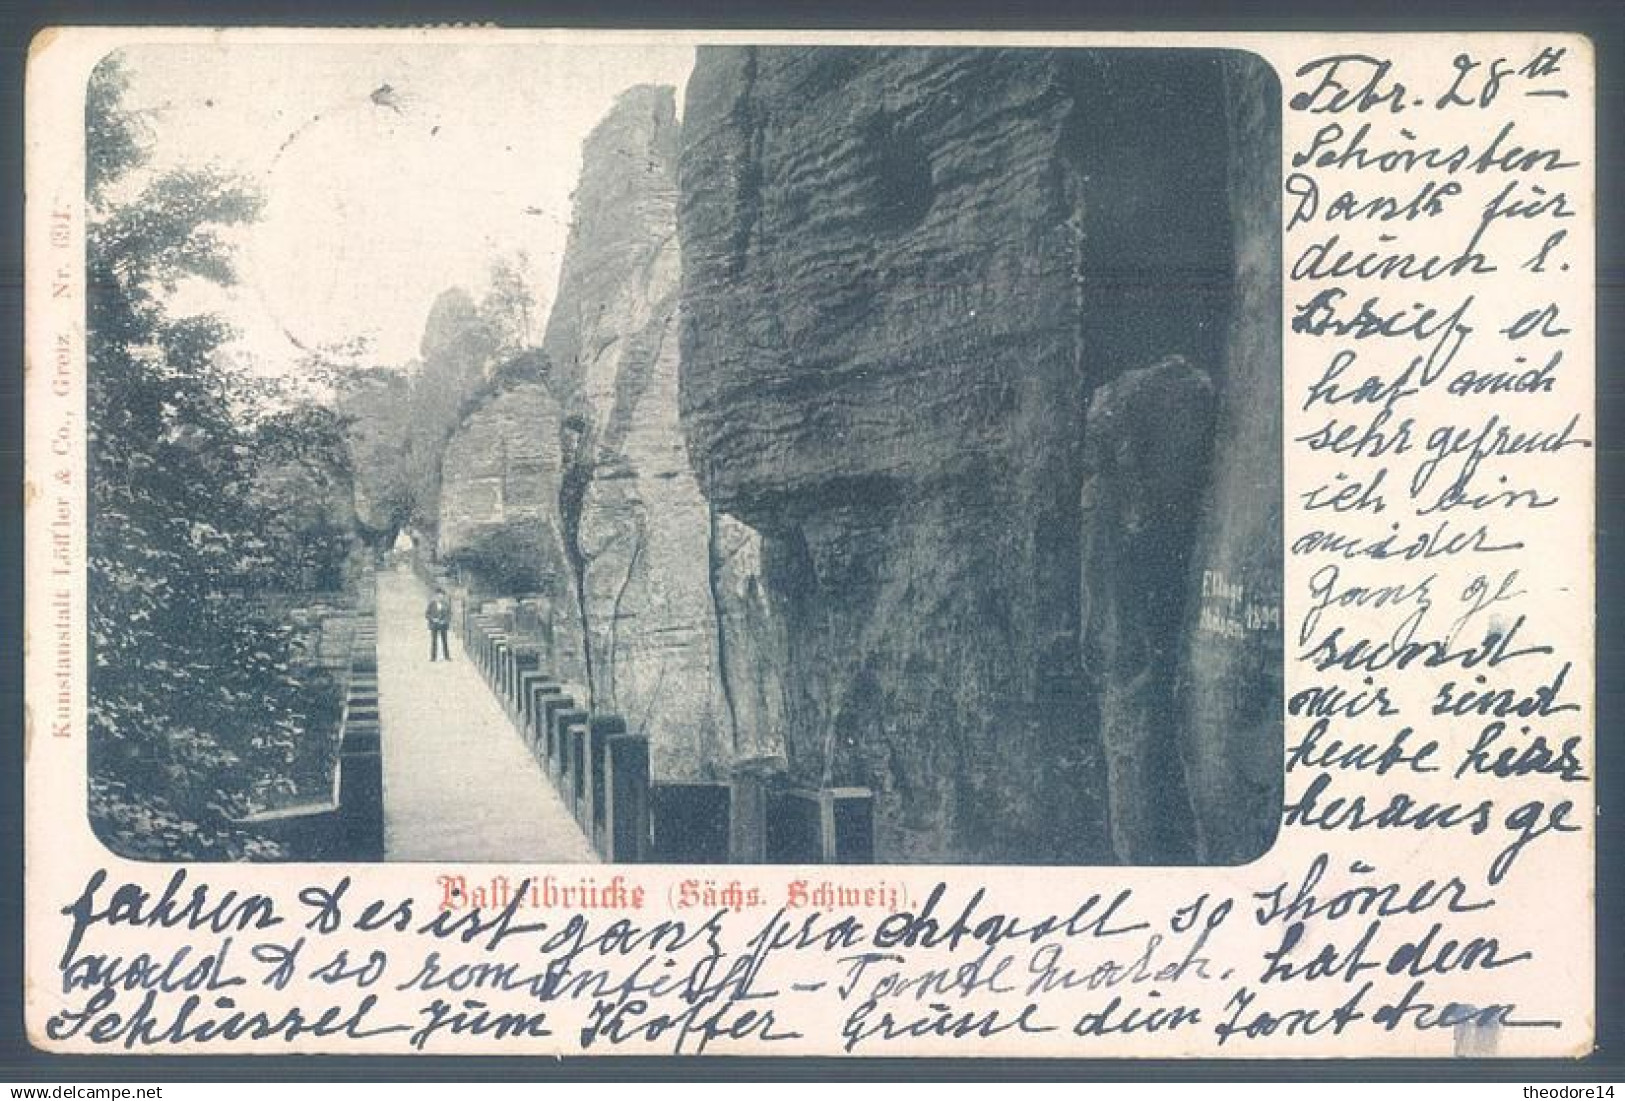 Febr. 28th
Schönsten
Dank für
deinen l.
Brief, er
hat mich
sehr gefreut
ich bin
wieder
ganz ge
sund
wir sind
heute hier
heraus ge
fahren & es ist ganz prachtvoll so schöner
wald & so romantisch - Tante March. hat den
Schlüssel zum Koffer Grüssl dein Tantchen
Basteibrücke (Sächs. Schweiz).
Kunstanstalt Löffler & Co., Greiz Nr. 691.
1899
theodore14